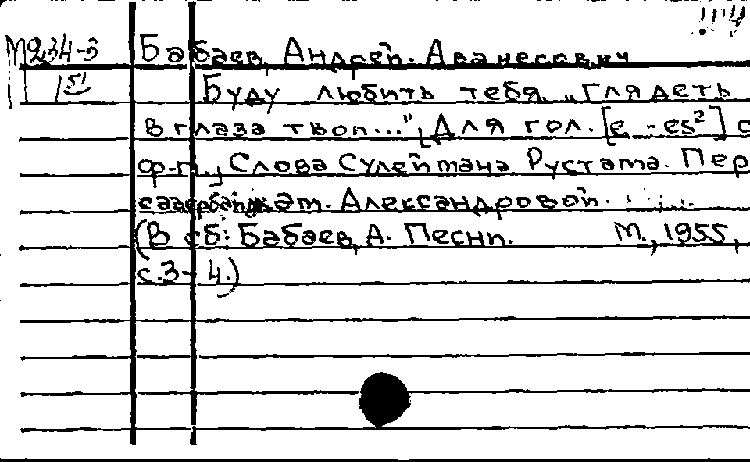 М234-3 Бабаев, Андрей Аванесович
151 Буду любить тебя. „Глядеть
в глаза твои...", Для гол. [e - es²] с
ф-п., Слова Сулеймана Рустама. Пер
с азербайджан. Александровой.
(В сб: Бабаев, А. Песни. М., 1955,
с.3-4.)